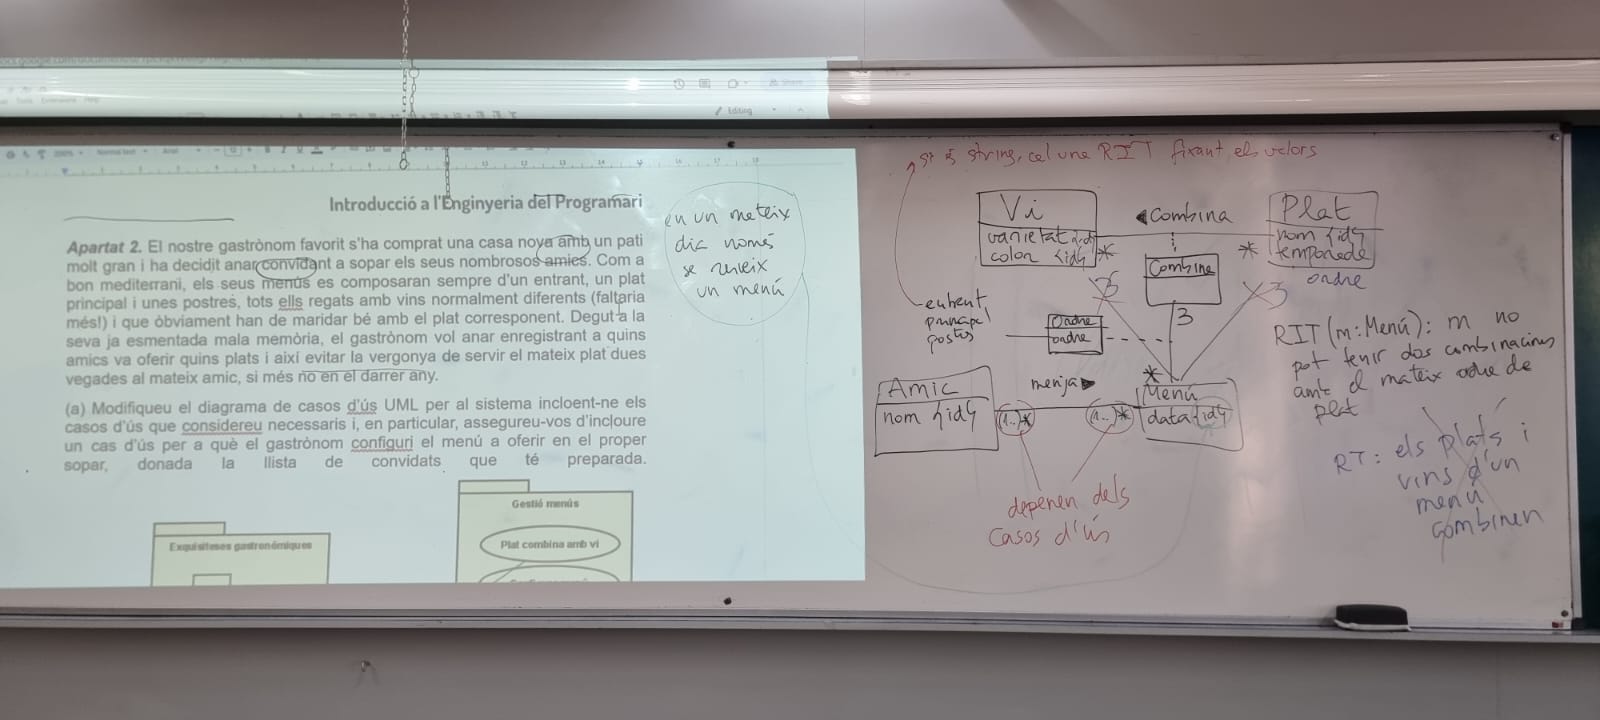 Editing
Introducció a l'Enginyeria del Programari
Apartat 2. El nostre gastrònom favorit s'ha comprat una casa nova amb un pati
molt gran i ha decidit anar convidant a sopar els seus nombrosos amics. Com a
bon mediterrani, els seus menús es composaran sempre d'un entrant, un plat
principal i unes postres, tots ells regats amb vins normalment diferents (faltaria
més!) i que òbviament han de maridar bé amb el plat corresponent. Degut a la
seva ja esmentada mala memòria, el gastrònom vol anar enregistrant a quins
amics va oferir quins plats i així evitar la vergonya de servir el mateix plat dues
vegades al mateix amic, si més no en el darrer any.
(a) Modifiqueu el diagrama de casos d'ús UML per al sistema incloent-ne els
casos d'ús que considereu necessaris i, en particular, assegureu-vos d'incloure
un cas d'ús per a què el gastrònom configuri el menú a oferir en el proper
sopar, donada la llista de convidats que té preparada.
Exquisiteses gastronòmiques
Gestió menús
Plat combina amb vi
en un mateix
dia només
se serveix
un menú
si és string, cal una RIT fixant els valors
Vi
varietat {id}
color {id}
*
◀ Combina
Plat
nom {id}
temporada
ordre
*
Combina
3
3
3
entrant
principal
postres
Ordre
ordre
Amic
nom {id}
menja ▶
(1..)*
(1..)*
*
Menú
data {id}
depenen dels
casos d'ús
RIT (m: Menú): m no
pot tenir dos combinacions
amb el mateix ordre de
plat
RT: els plats i
vins d'un
menú
combinen